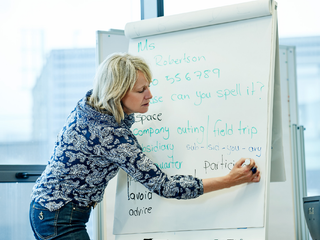 Ms
Robertson
556789
can you spell it?
space
company outing / field trip
sub-si-
quarter
parti
avoid
advice